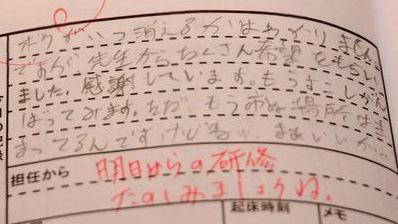 ボクがいつ消えるかはわかりません。
ですが、先生からたくさん希望をもらい
ました。感謝しています。もうすこしがん
ばってみます。ただ、もう市ぬ場所はき
まってるんですけどねw まあいいか…
担任から
明日からの研修
たのしみましょうね。
起床時刻
メモ